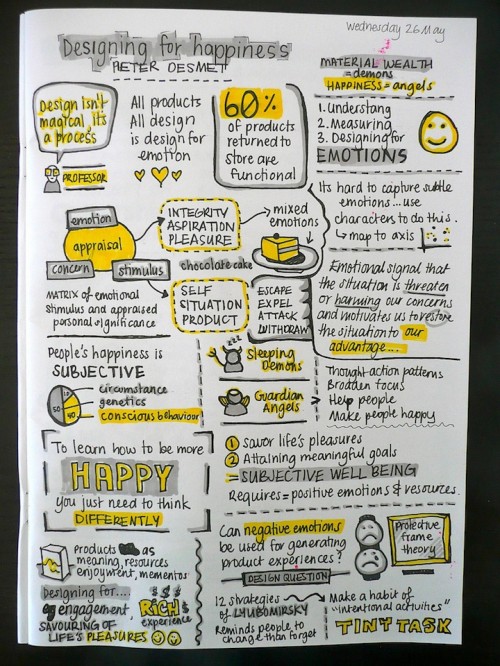 Wednesday 26 May
Designing for happiness
PETER DESMET
MATERIAL WEALTH
= demons
HAPPINESS = angels
Design isn't
magical, it's
a process
PROFESSOR
All products
All design
is design for
emotion
60%
of products
returned to
store are
functional
1. Understang
2. Measuring
3. Designing for
EMOTIONS
Its hard to capture subtle
emotions... use
characters to do this.
↳ map to axis
emotion
appraisal
concern
stimulus
INTEGRITY
ASPIRATION
PLEASURE
mixed
emotions
chocolate cake
MATRIX of emotional
stimulus and appraised
personal significance
SELF
SITUATION
PRODUCT
ESCAPE
EXPEL
ATTACK
WITHDRAW
Emotional signal that
the situation is threaten
or harming our concerns
and motivates us to restore
the situation to our
advantage...
People's happiness is
SUBJECTIVE
10
50
40
circumstance
genetics
conscious behaviour
zzz
Sleeping
Demons
Guardian
Angels
Thought-action patterns
Broaden focus
Help people
Make people happy
To learn how to be more
HAPPY
you just need to think
DIFFERENTLY
1 savor life's pleasures
2 Attaining meaningful goals
= SUBJECTIVE WELL BEING
Requires = positive emotions & resources.
products as
meaning, resources
enjoyment, mementos
Can negative emotions
be used for generating
product experiences?
DESIGN QUESTION
Protective
frame
theory
Designing for...
engagement
SAVOURING OF
LIFE'S PLEASURES
RICH
experience
12 strategies
of LYUBOMIRSKY
Reminds people to
change than forget
Make a habit of
"intentional activities"
TINY TASK